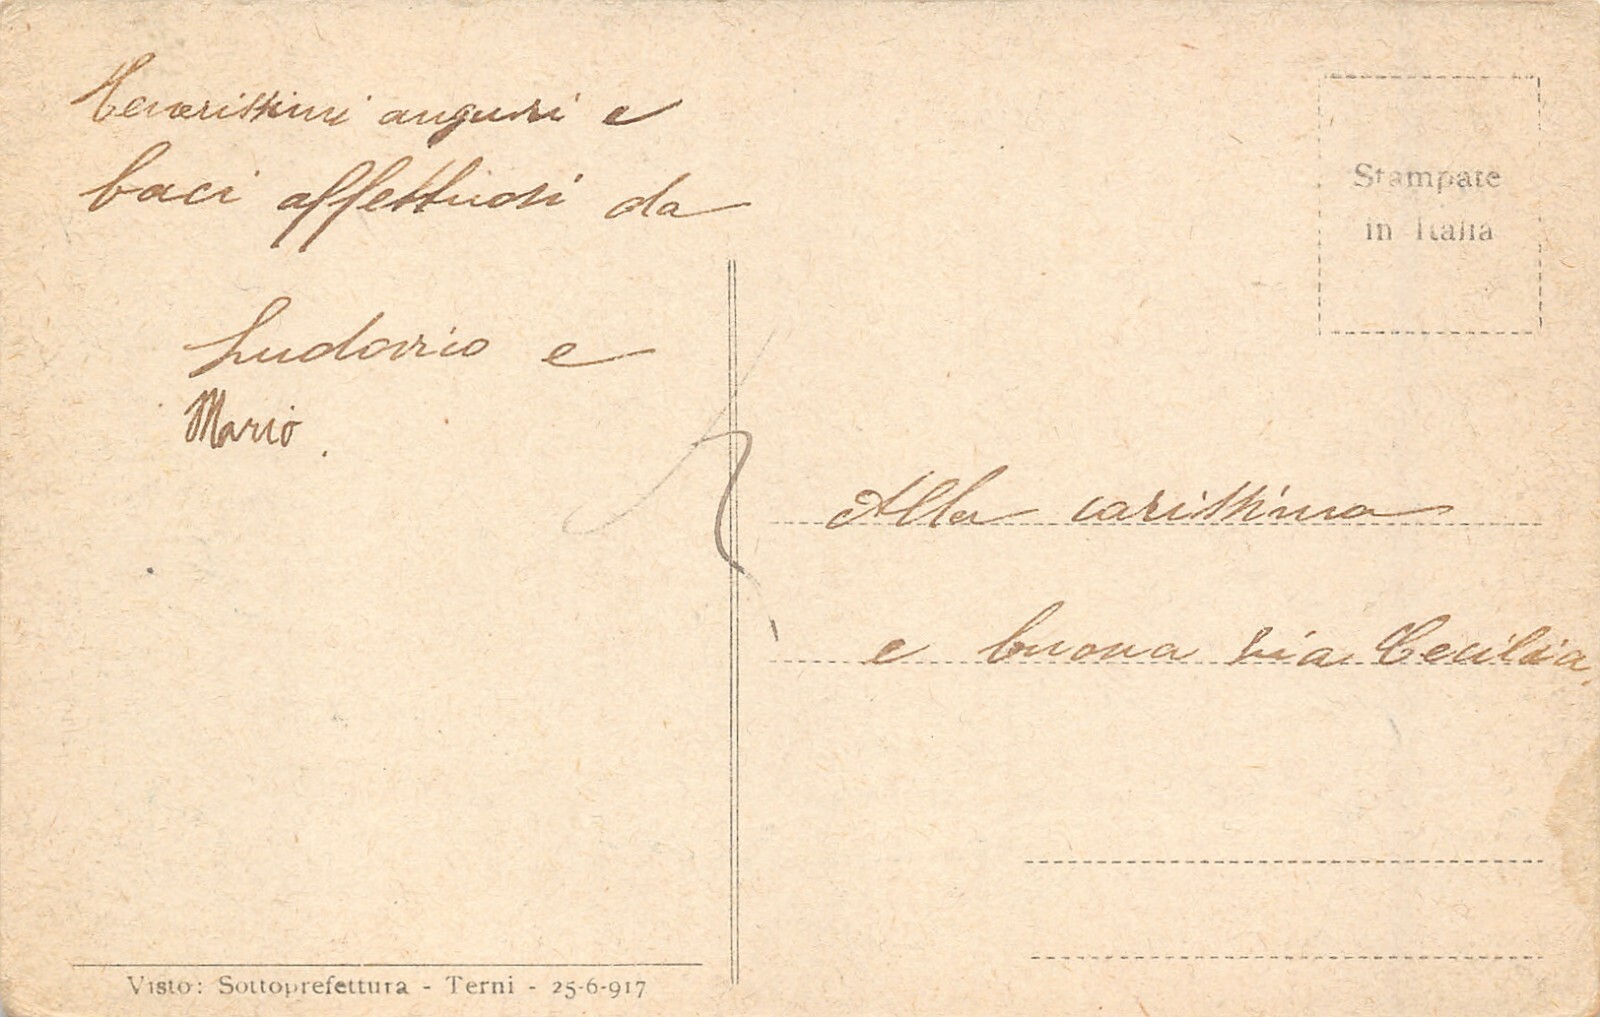 Tenerissimi auguri e
baci affettuosi da
Ludovico e
Mario.
Stampate
in Italia
Alla carissima
e buona zia Cecilia
Visto: Sottoprefettura - Terni - 25-6-917